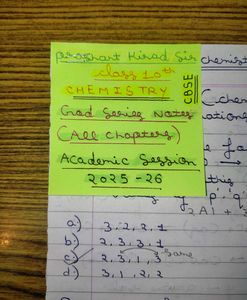 Prashant Kirad Sir
class 10th
CHEMISTRY
CBSE
God Series Notes
(All Chapters)
Academic Session
2025-26
chemist
(chem
ation
fo
2Al +
a) 3, 2, 2, 1
b) 2, 3, 3, 1
c) 2, 3, 1, 3
d) 3, 1, 2, 2